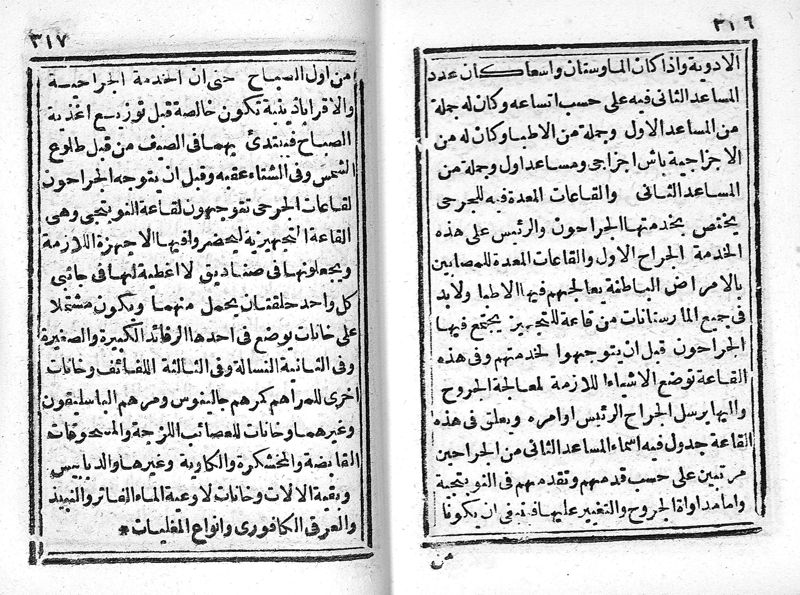 ٣١٦
الادوية واذا كان المارستان واسعا كان عدد
المساعد الثانى فيه على حسب اتساعه وكان له جملة
من المساعد الاول وجملة من الاطبا وكان له من
الاجزاجية باش اجزاجى ومساعد اول وجملة من
المساعد الثانى والقاعات المعدة فيه للجرحى
يختص بخدمتها الجراحون والرئيس على هذه
الخدمة الجراح الاول والقاعات المعدة للمصابين
بالامراض الباطنة يعالجهم فيها الاطبا ولابد
فى جميع المارستانات من قاعة للتجهيز يجتمع فيها
الجراحون قبل ان يتوجهوا لخدمتهم وفى هذه
القاعة توضع الاشياء اللازمة لمعالجة الجروح
واليها يرسل الجراح الرئيس اوامره ويعلق فى هذه
القاعة جدول فيه اسماء المساعد الثانى من الجراحين
مرتبين على حسب قدمهم وتقدمهم فى النوبتجية
واما مداواة الجروح والتغيير عليها فينبغى ان يكونا
من
٣١٧
من اول الصباح حتى ان الخدمة الجراحية
والاقراباذينية تكون خالصة قبل توزيع اغذية
الصباح فيبتدئ بهما فى الصيف من قبل طلوع
الشمس وفى الشتاء عقبه وقبل ان يتوجه الجراحون
لقاعات الجرحى يتوجهون لقاعة النوبتجى وهى
القاعة التجهيزية ليحضروا فيها الاجهزة اللازمة
ويجعلونها فى صناديق لا اغطية لها فى جانبى
كل واحد حلقتان يحمل منهما ويكون مشتملا
على خانات يوضع فى احدها الرفائد الكبيرة والصغيرة
وفى الثانية النسالة وفى الثالثة اللفائف وخانات
اخرى للمراهم كمرهم جالينوس ومرهم الباسليقون
وغيرهما وخانات للعصائب اللزجة والمسحوقات
القابضة والمخشكرة والكاوية وغيرها والدبابيس
وبقية الالات وخانات لاوعية الماء الفاتر والنبيذ
والعرقى الكافورى وانواع المغليات *